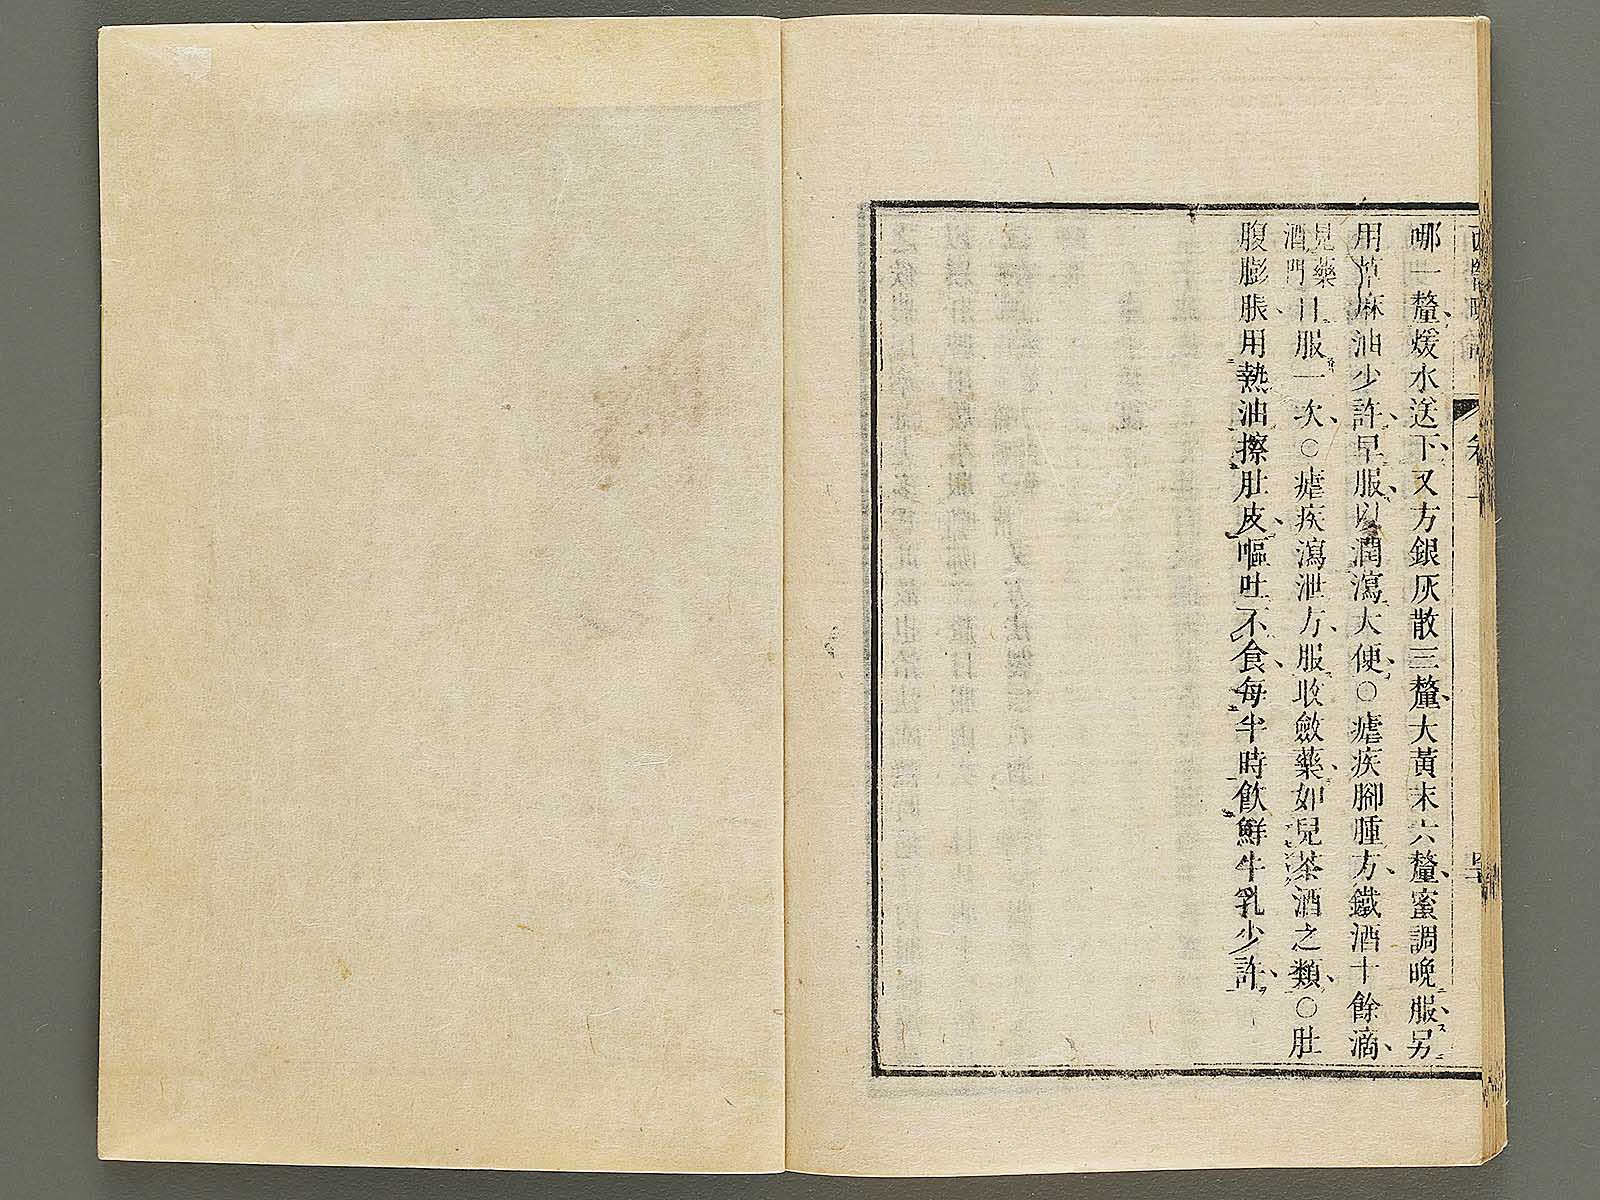 哪一釐煖水送下又方銀灰散三釐大黃末六釐蜜調晚服另
用草麻油少許早服以潤瀉大便○瘧疾腳腫方鐵酒十餘滴
見藥酒門日服一次○瘧疾瀉泄方服收斂藥如兒茶酒之類○肚
腹膨脹用熱油擦肚皮嘔吐不食每半時飲鮮牛乳少許